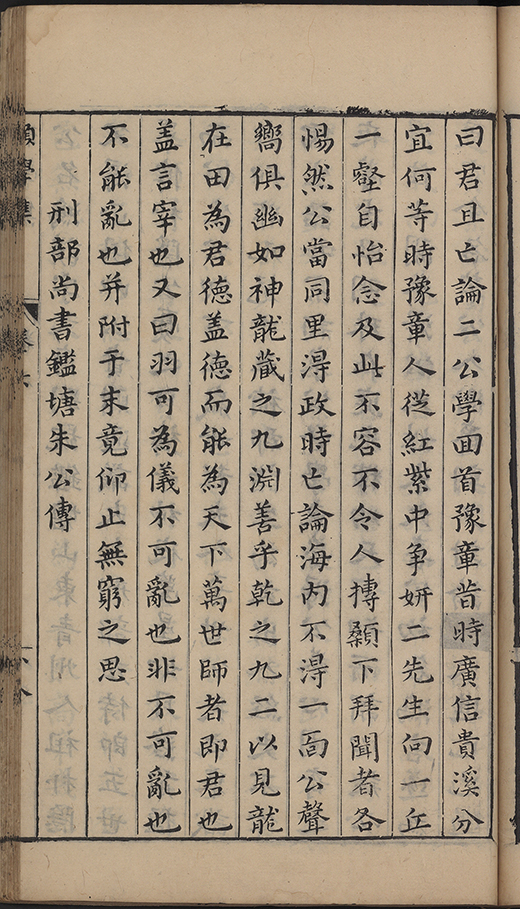 曰君且亡論二公學回首豫章昔時廣信貴溪分
宜何等時豫章人從紅紫中爭妍二先生向一丘
一壑自怡念及此不容不令人摶顙下拜聞者各
惕然公當同里淂政時亡論海内不淂一面公聲
嚮俱幽如神龍藏之九淵善乎乾之九二以見龍
在田為君德盖德而能為天下萬世師者即君也
盖言宰也又曰羽可為儀不可亂也非不可亂也
不能亂也并附于末竟仰止無窮之思
刑部尚書鑑塘朱公傳
願學集
卷六